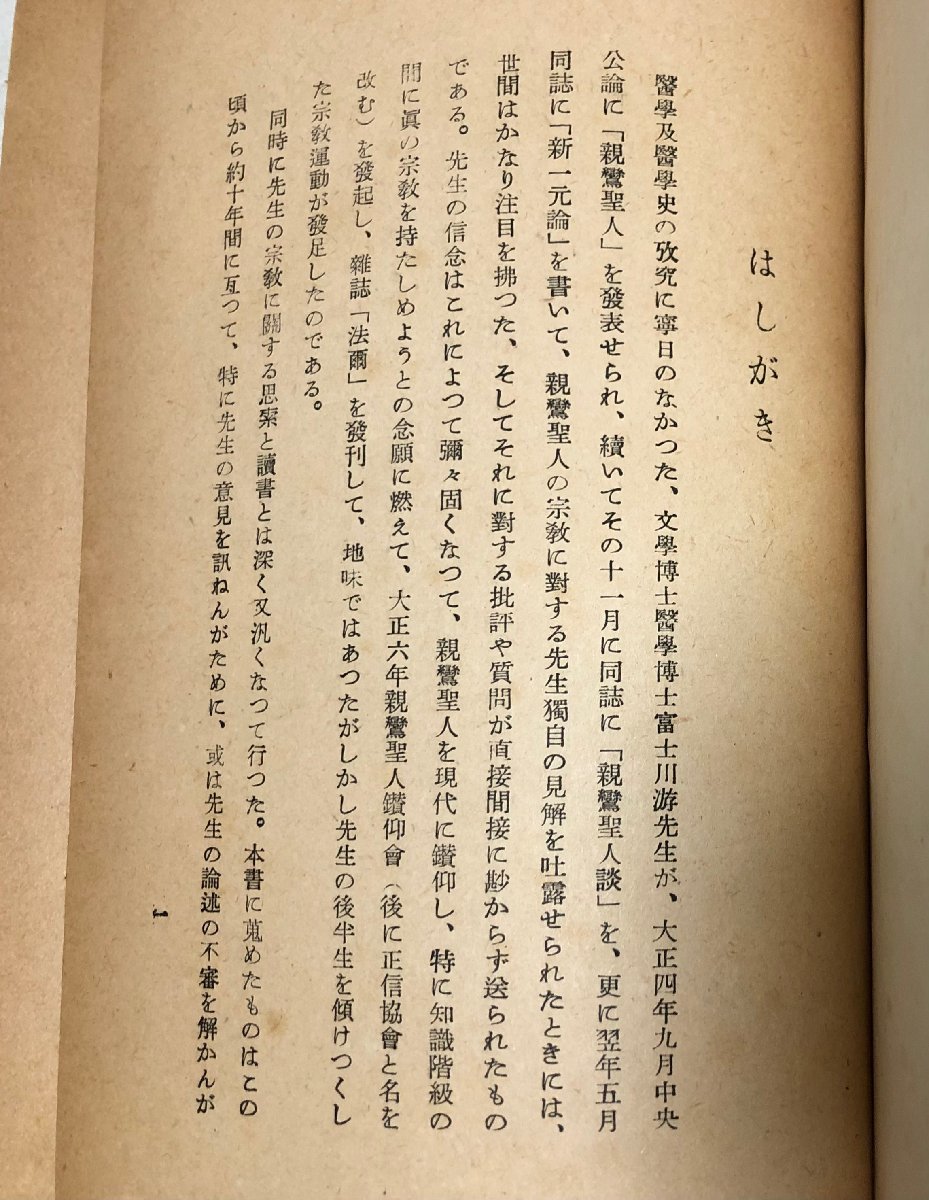 はしがき
醫學及醫學史の攷究に寧日のなかつた、文學博士醫學博士富士川游先生が、大正四年九月中央
公論に「親鸞聖人」を發表せられ、續いてその十一月に同誌に「親鸞聖人談」を、更に翌年五月
同誌に「新一元論」を書いて、親鸞聖人の宗教に對する先生獨自の見解を吐露せられたときには、
世間はかなり注目を拂つた、そしてそれに對する批評や質問が直接間接に尠からず送られたもの
である。先生の信念はこれによつて彌々固くなつて、親鸞聖人を現代に鑽仰し、特に知識階級の
間に眞の宗教を持たしめようとの念願に燃えて、大正六年親鸞聖人鑽仰會（後に正信協會と名を
改む）を發起し、雜誌「法爾」を發刊して、地味ではあつたがしかし先生の後半生を傾けつくし
た宗教運動が發足したのである。
同時に先生の宗教に關する思索と讀書とは深く又汎くなつて行つた。本書に蒐めたものはこの
頃から約十年間に亙つて、特に先生の意見を訊ねんがために、或は先生の論述の不審を解かんが
1